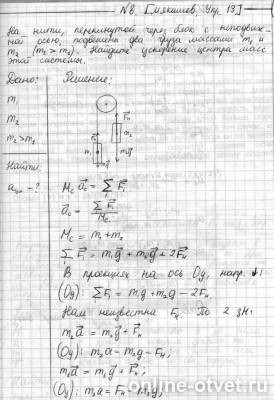 №8. [Мякишев, Упр. 13]
На нити, перекинутой через блок с неподвиж-
ной осью, подвешены два груза массами m₁ и
m₂ (m₁ > m₂). Найдите ускорение центра масс
этой системы.
Дано: Решение:
m₁
m₂
m₂>m₁
Найти:
a - ?
Fн
Fн
m₁
m₂
m₁g
m₂g
Mc a⃗c = Σ F⃗i
a⃗c = ΣF⃗i / Mc
Mc = m₁ + m₂
Σ F⃗i = m₁g⃗ + m₂g⃗ + 2F⃗н
В проекциях на ось Oy, напр. ↓:
(Oy): ΣFi = m₁g + m₂g - 2Fн
Нам неизвестна Fн. По 2 ЗН:
m₂a⃗ = m₂g⃗ + F⃗н
(Oy): m₂a = m₂g - Fн;
m₁a⃗ = m₁g⃗ + F⃗н;
(Oy): a = Fн -
online-otvet.ru